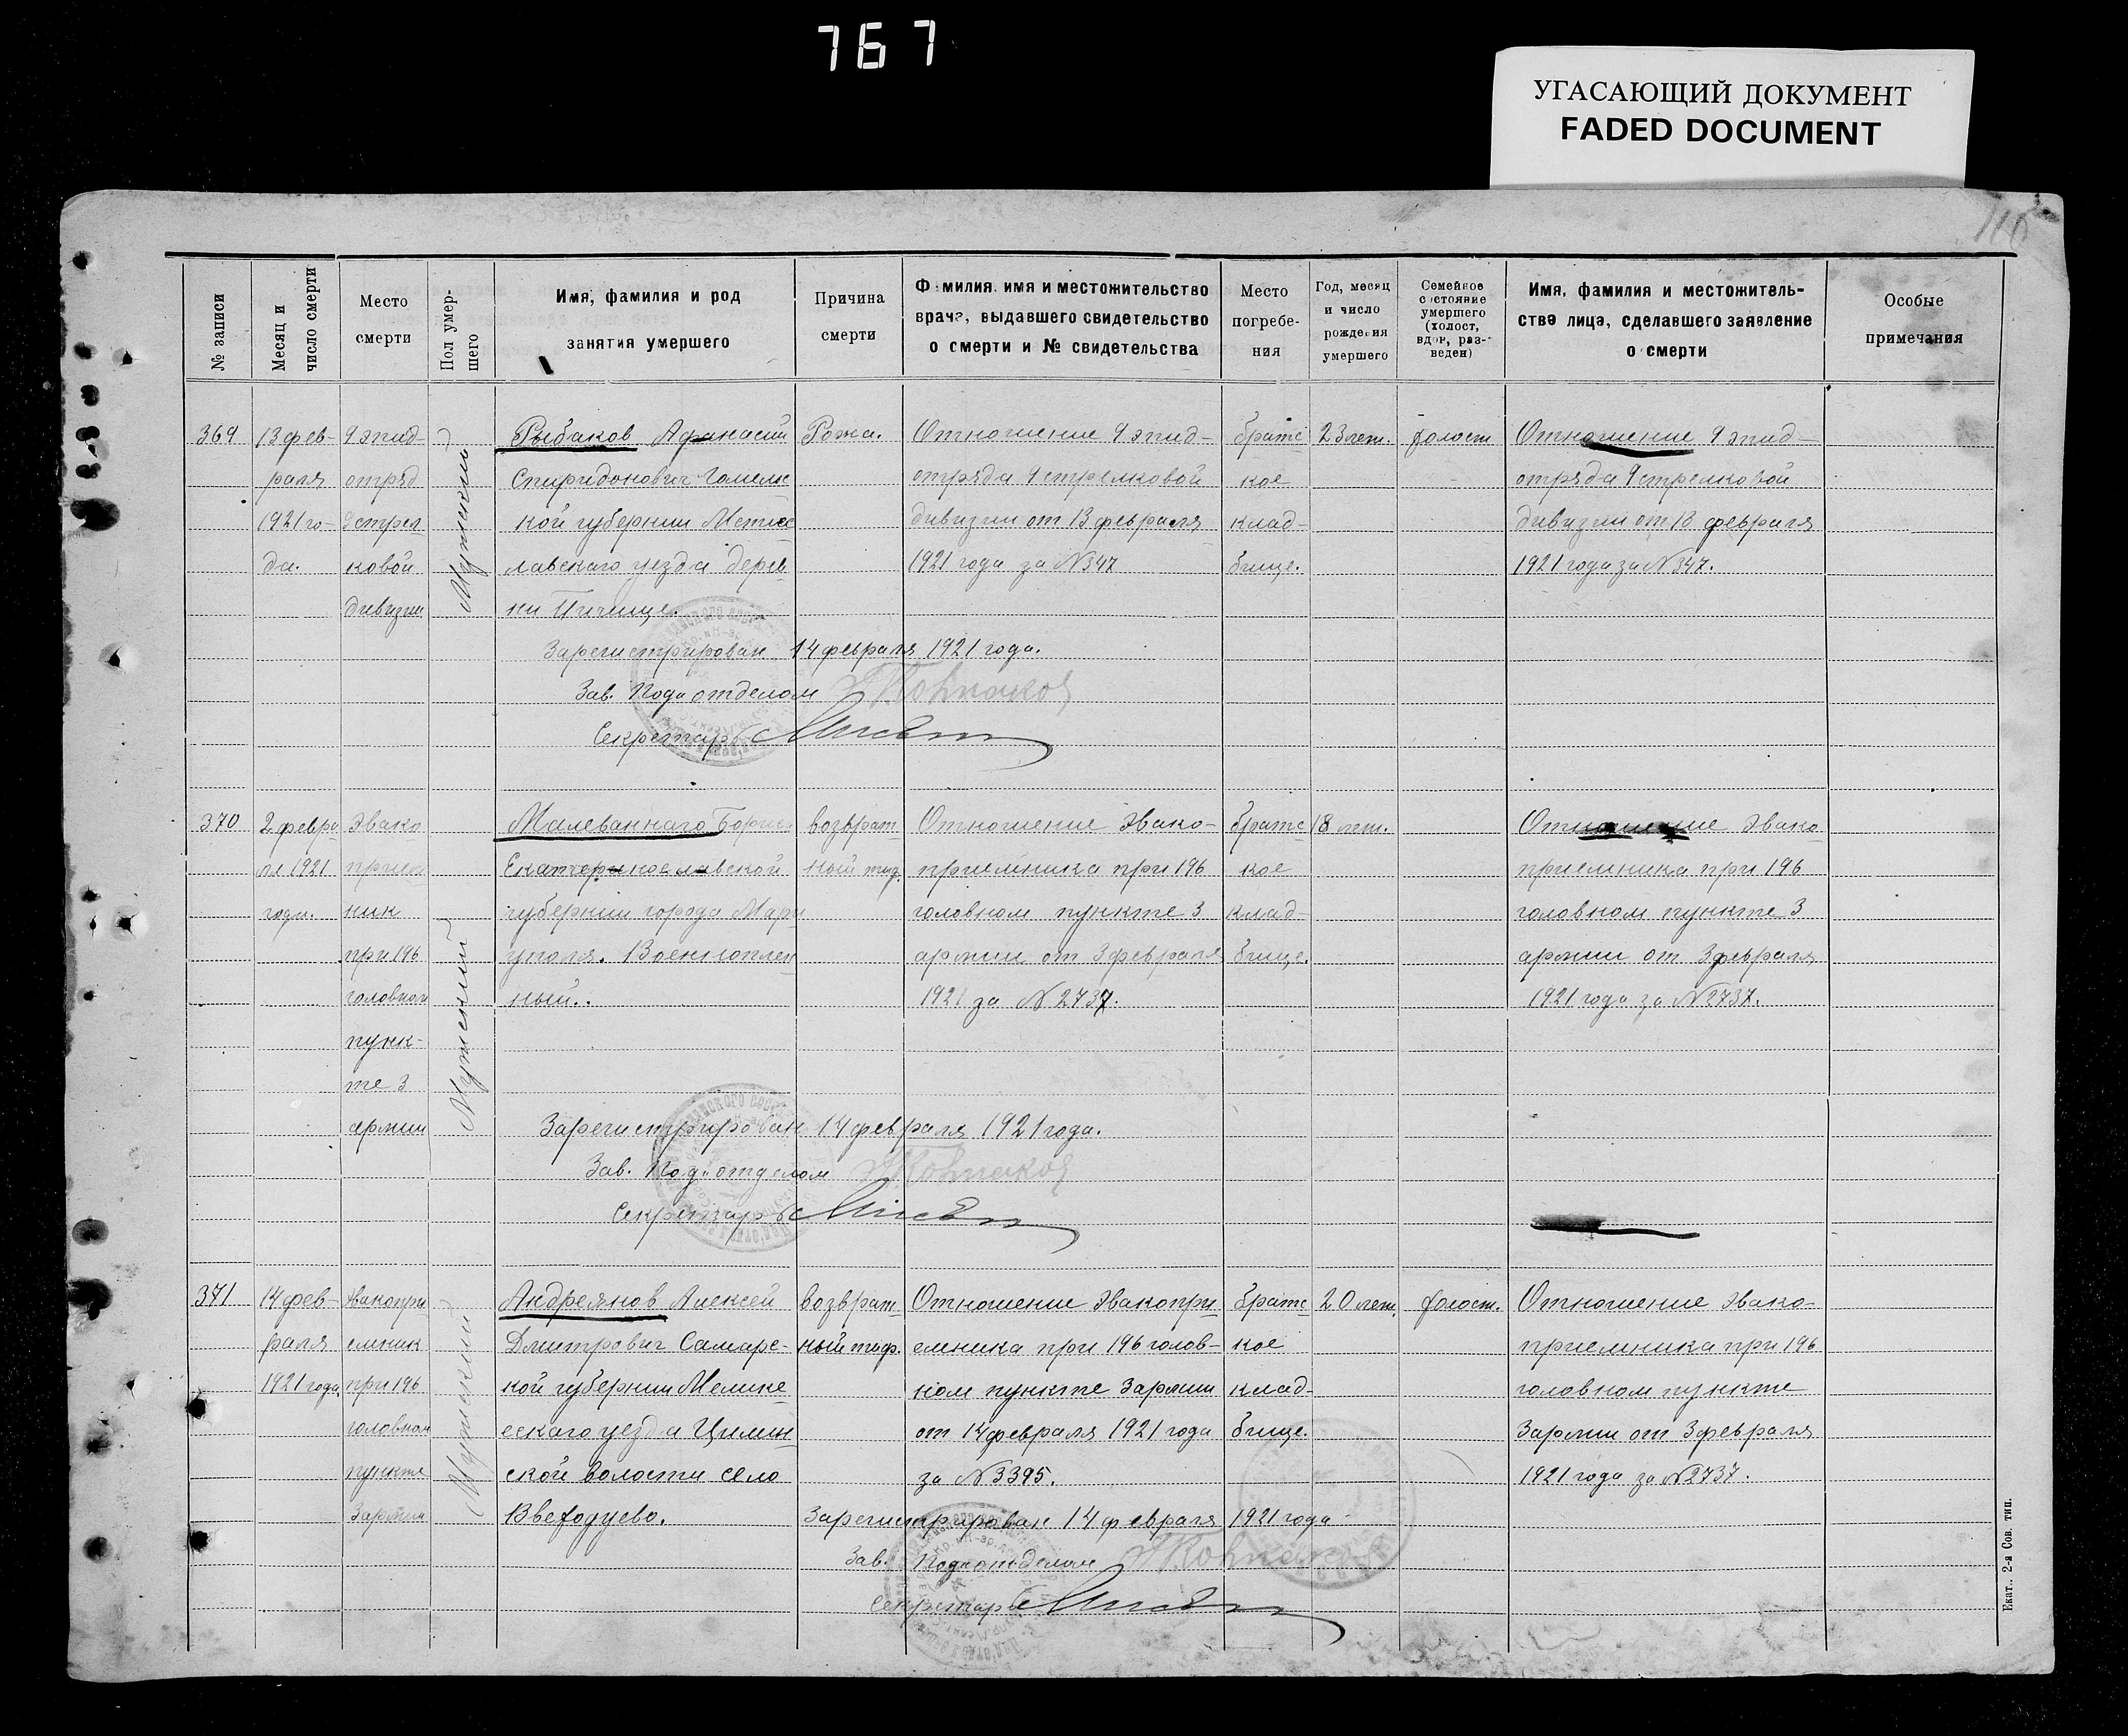 767
УГАСАЮЩИЙ ДОКУМЕНТ
FADED DOCUMENT
№ записи
Месяц и число смерти
Место смерти
Пол умершего
Имя, фамилия и род занятия умершего
Причина смерти
Фамилия, имя и местожительство врача, выдавшего свидетельство о смерти и № свидетельства
Место погребения
Год, месяц и число рождения умершего
Семейное состояние умершего (холост, вдов, разведен)
Имя, фамилия и местожительство лица, сделавшего заявление о смерти
Особые примечания
369
13 фев-
раля
1921 го-
да.
9 эпид-
отряд
9 стрел
ковой
дивизии
Мужской
Рыбаков Афанасий
Спиридонович Гомельс
кой губернии Мстис
лавского уезда дерев
ни Пичище.
Рожа.
Отношение 9 эпид-
отряда 9 стрелковой
дивизии от 13 февраля
1921 года за №347
братс
кое
клад-
бище.
23 лет.
холост
Отношение 9 эпид-
отряда 9 стрелковой
дивизии от 13 февраля
1921 года за №347.
Зарегистрирован 14 февраля 1921 года.
Зав. Подотделом
Секретарь
370
2 февра
ля 1921
года.
Эвако
прием
ник
при 196
головном
пунк-
те 3
армии
Мужской
Малеваннаго Борис
Екатеринославской
губернии города Мари
уполя. Военноплен
ный.
возврат
ный тиф.
Отношение Эвако-
приемника при 196
головном пункте 3
армии от 3 февраля
1921 за №2737.
братс
кое
клад-
бище.
18 лет.
Отношение Эвако
приемника при 196
головном пункте 3
армии от 3 февраля
1921 года за №2737.
Зарегистрирован 14 февраля 1921 года.
Зав. Подотделом
Секретарь
371
14 фев-
раля
1921 года
Эвакопри
емник
при 196
головном
пункте
3 армии
Мужской
Андреянов Алексей
Дмитрович Самарс-
кой губернии Мелике
сскаго уезда
ской волости село
возврат
ный тиф.
Отношение Эвакопри
емника при 196 голов-
ном пункте 3 армии
от 14 февраля 1921 года
за №3395.
братс
кое
клад-
бище.
20 лет.
холост.
Отношение Эвако-
приемника при 196
головном пункте
3 армии от 3 февраля
1921 года за №2737.
Зарегистрирован 14 февраля 1921 года
Зав. Подотделом
Секретарь
Екат., 2-я Сов. тип.